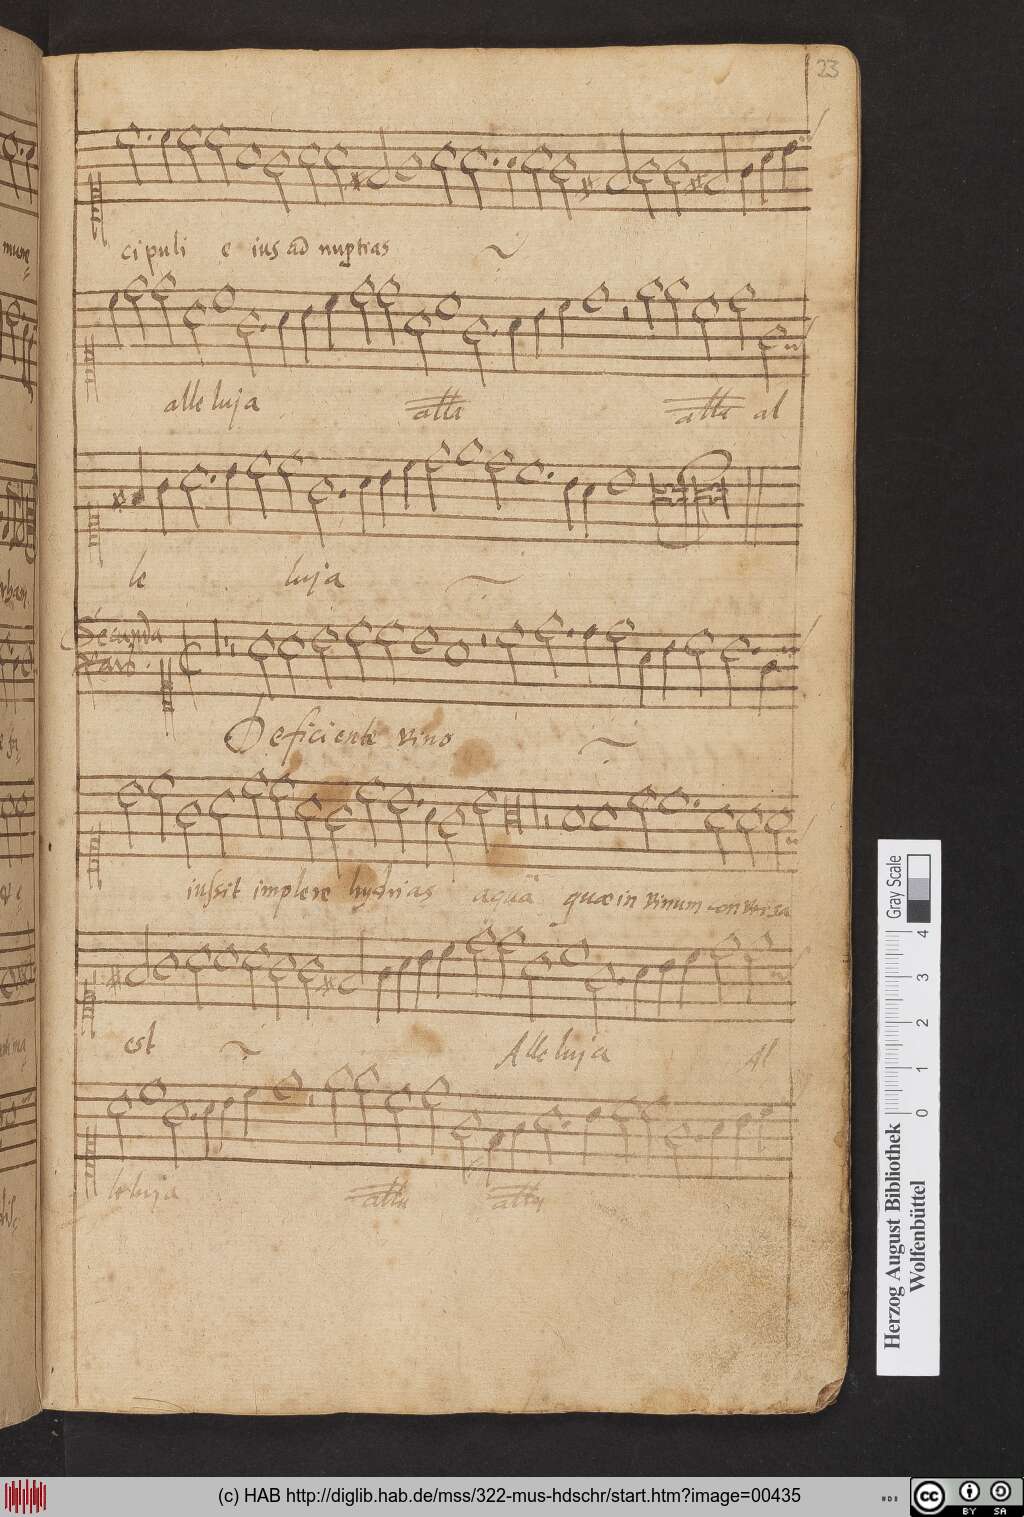 23
cipuli eius ad nuptias
alleluja alla alla al
le luja
Secunda
Pars.
Deficiente vino
iussit implere hydrias aquā quae in vinum conversa
est Alleluja Al
leluja alla alla
Gray Scale
0 1 2 3 4
Herzog August Bibliothek
Wolfenbüttel
(c) HAB http://diglib.hab.de/mss/322-mus-hdschr/start.htm?image=00435
cc BY SA